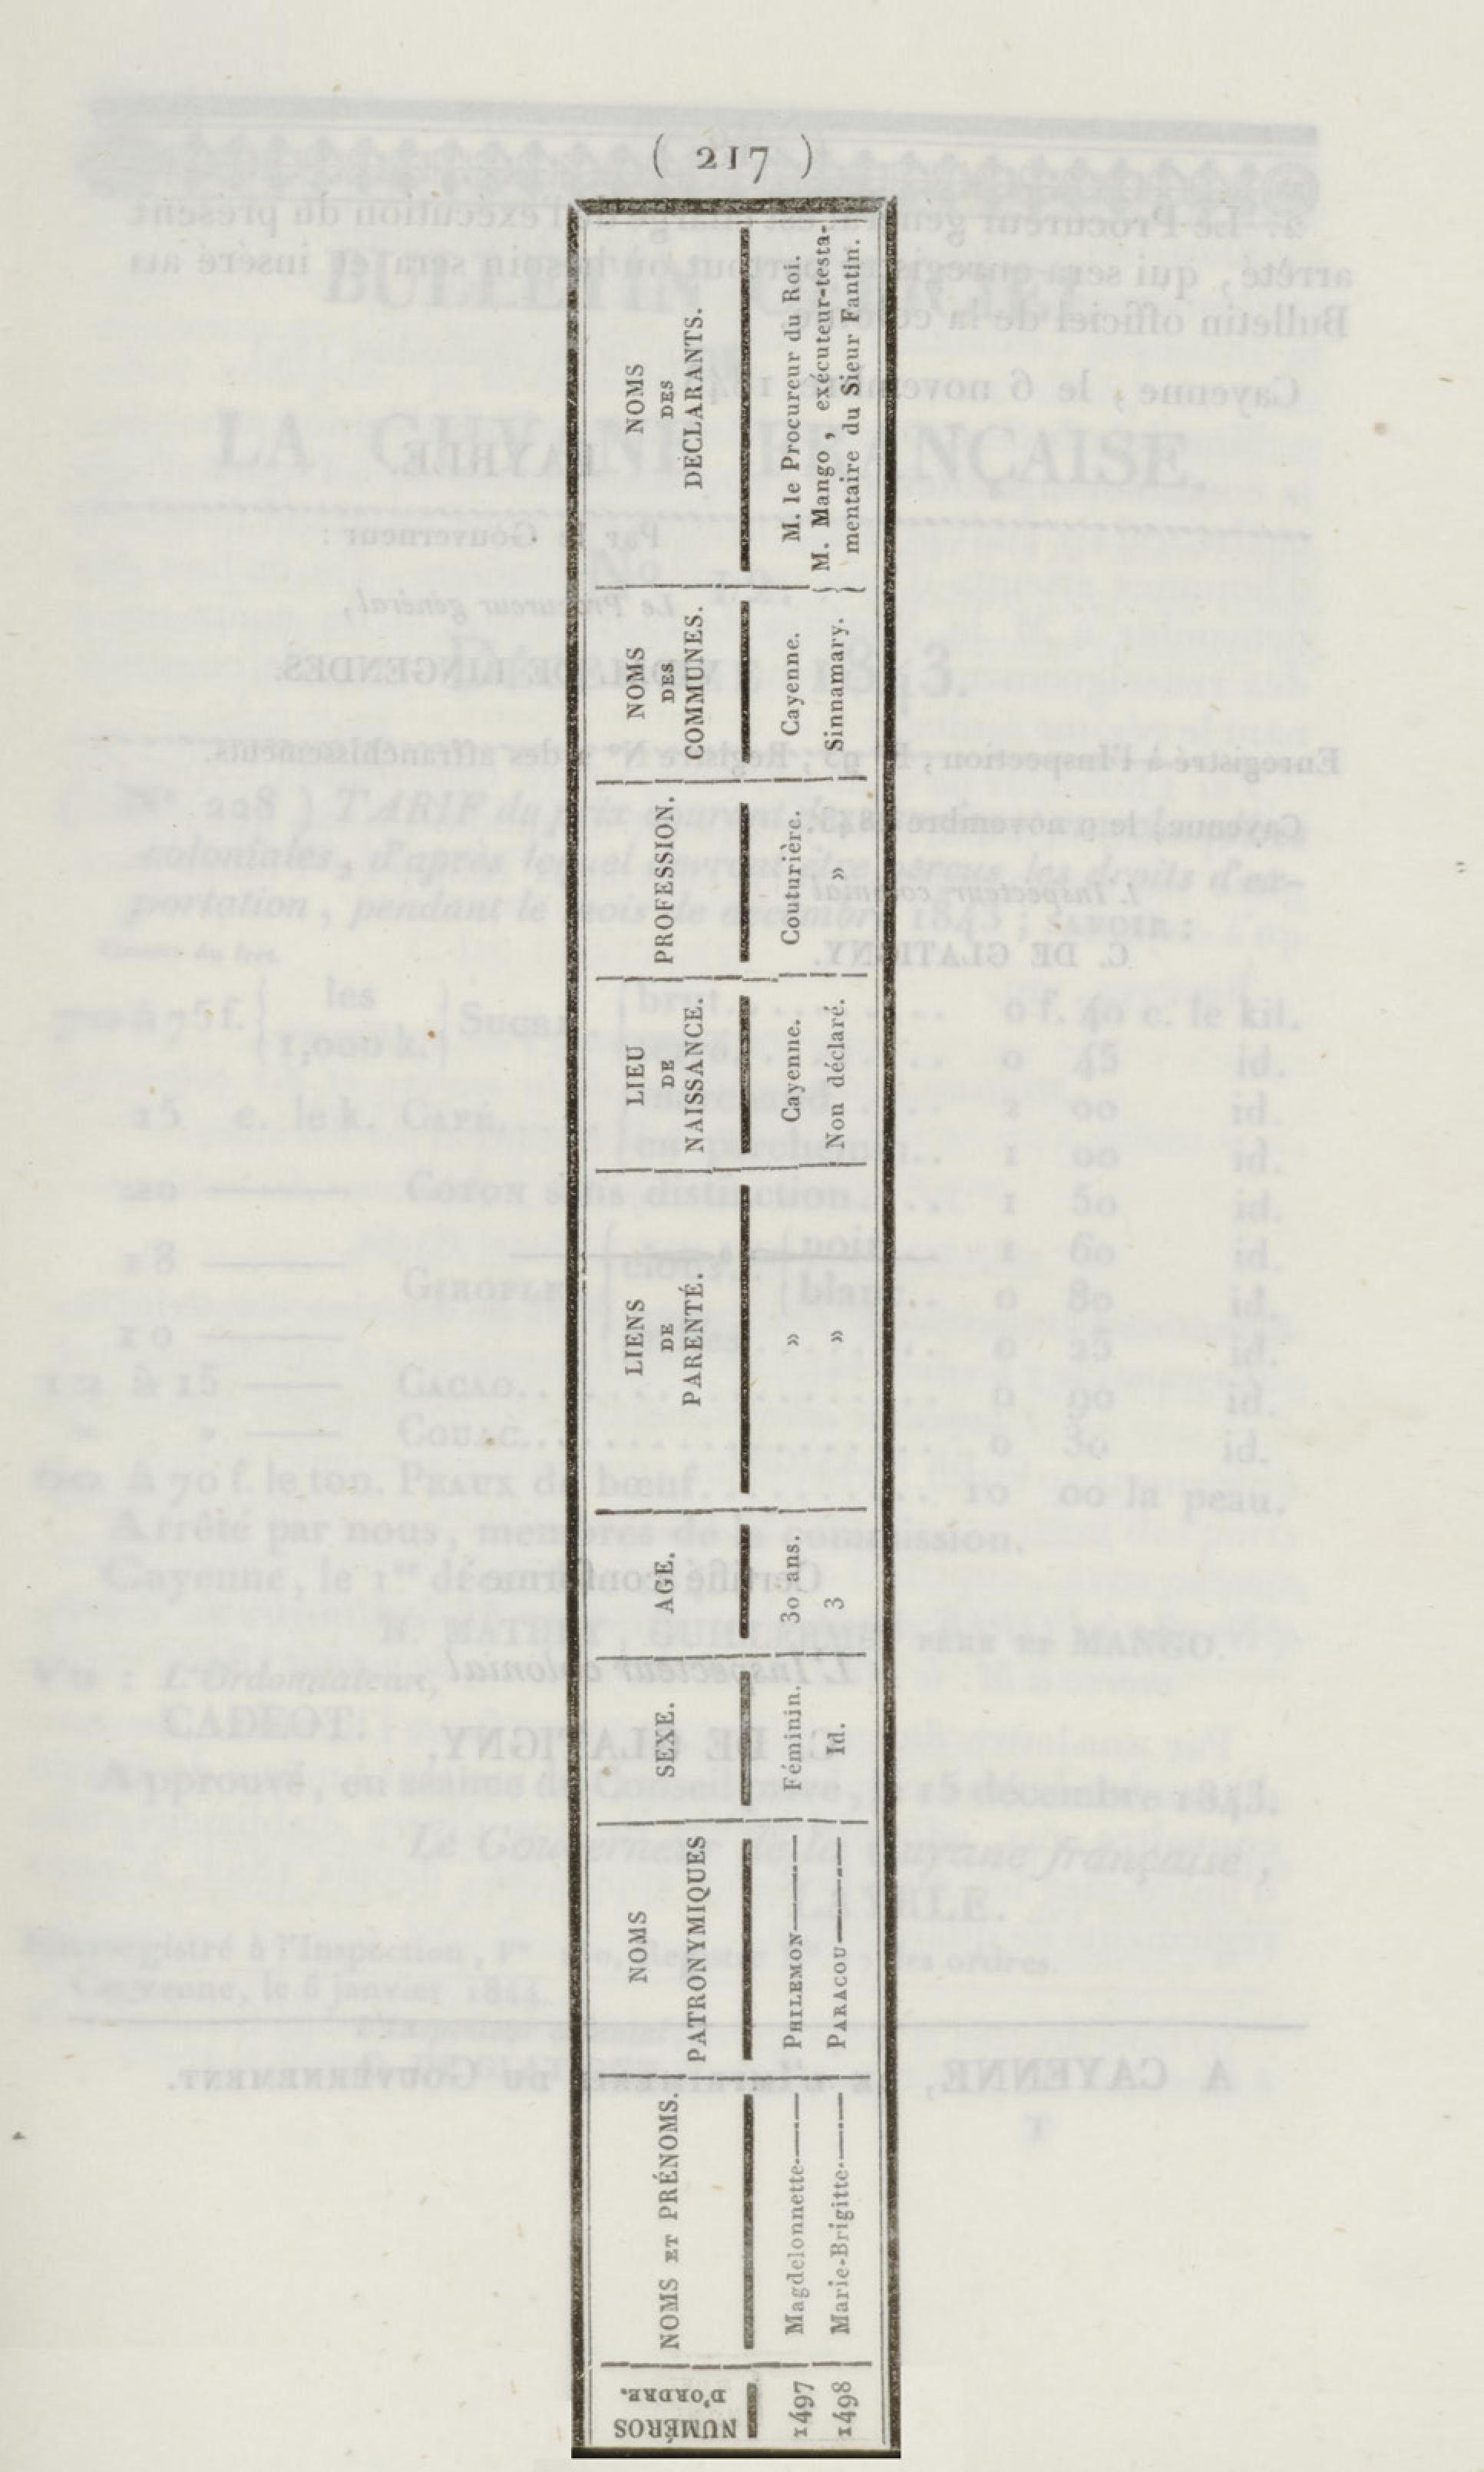 ( 217 )
NUMÉROS
D'ORDRE.
NOMS ET PRÉNOMS.
NOMS
PATRONYMIQUES
SEXE.
AGE.
LIENS
DE
PARENTÉ.
LIEU
DE
NAISSANCE.
PROFESSION.
NOMS
DES
COMMUNES.
NOMS
DES
DÉCLARANTS.
1497 Magdelonnette PHILEMON Féminin. 30 ans. » Cayenne. Couturière. Cayenne. M. le Procureur du Roi.
1498 Marie-Brigitte PARACOU Id. 3 » Non déclaré. » Sinnamary. { M. Mango, exécuteur-testa-
mentaire du Sieur Fantin.